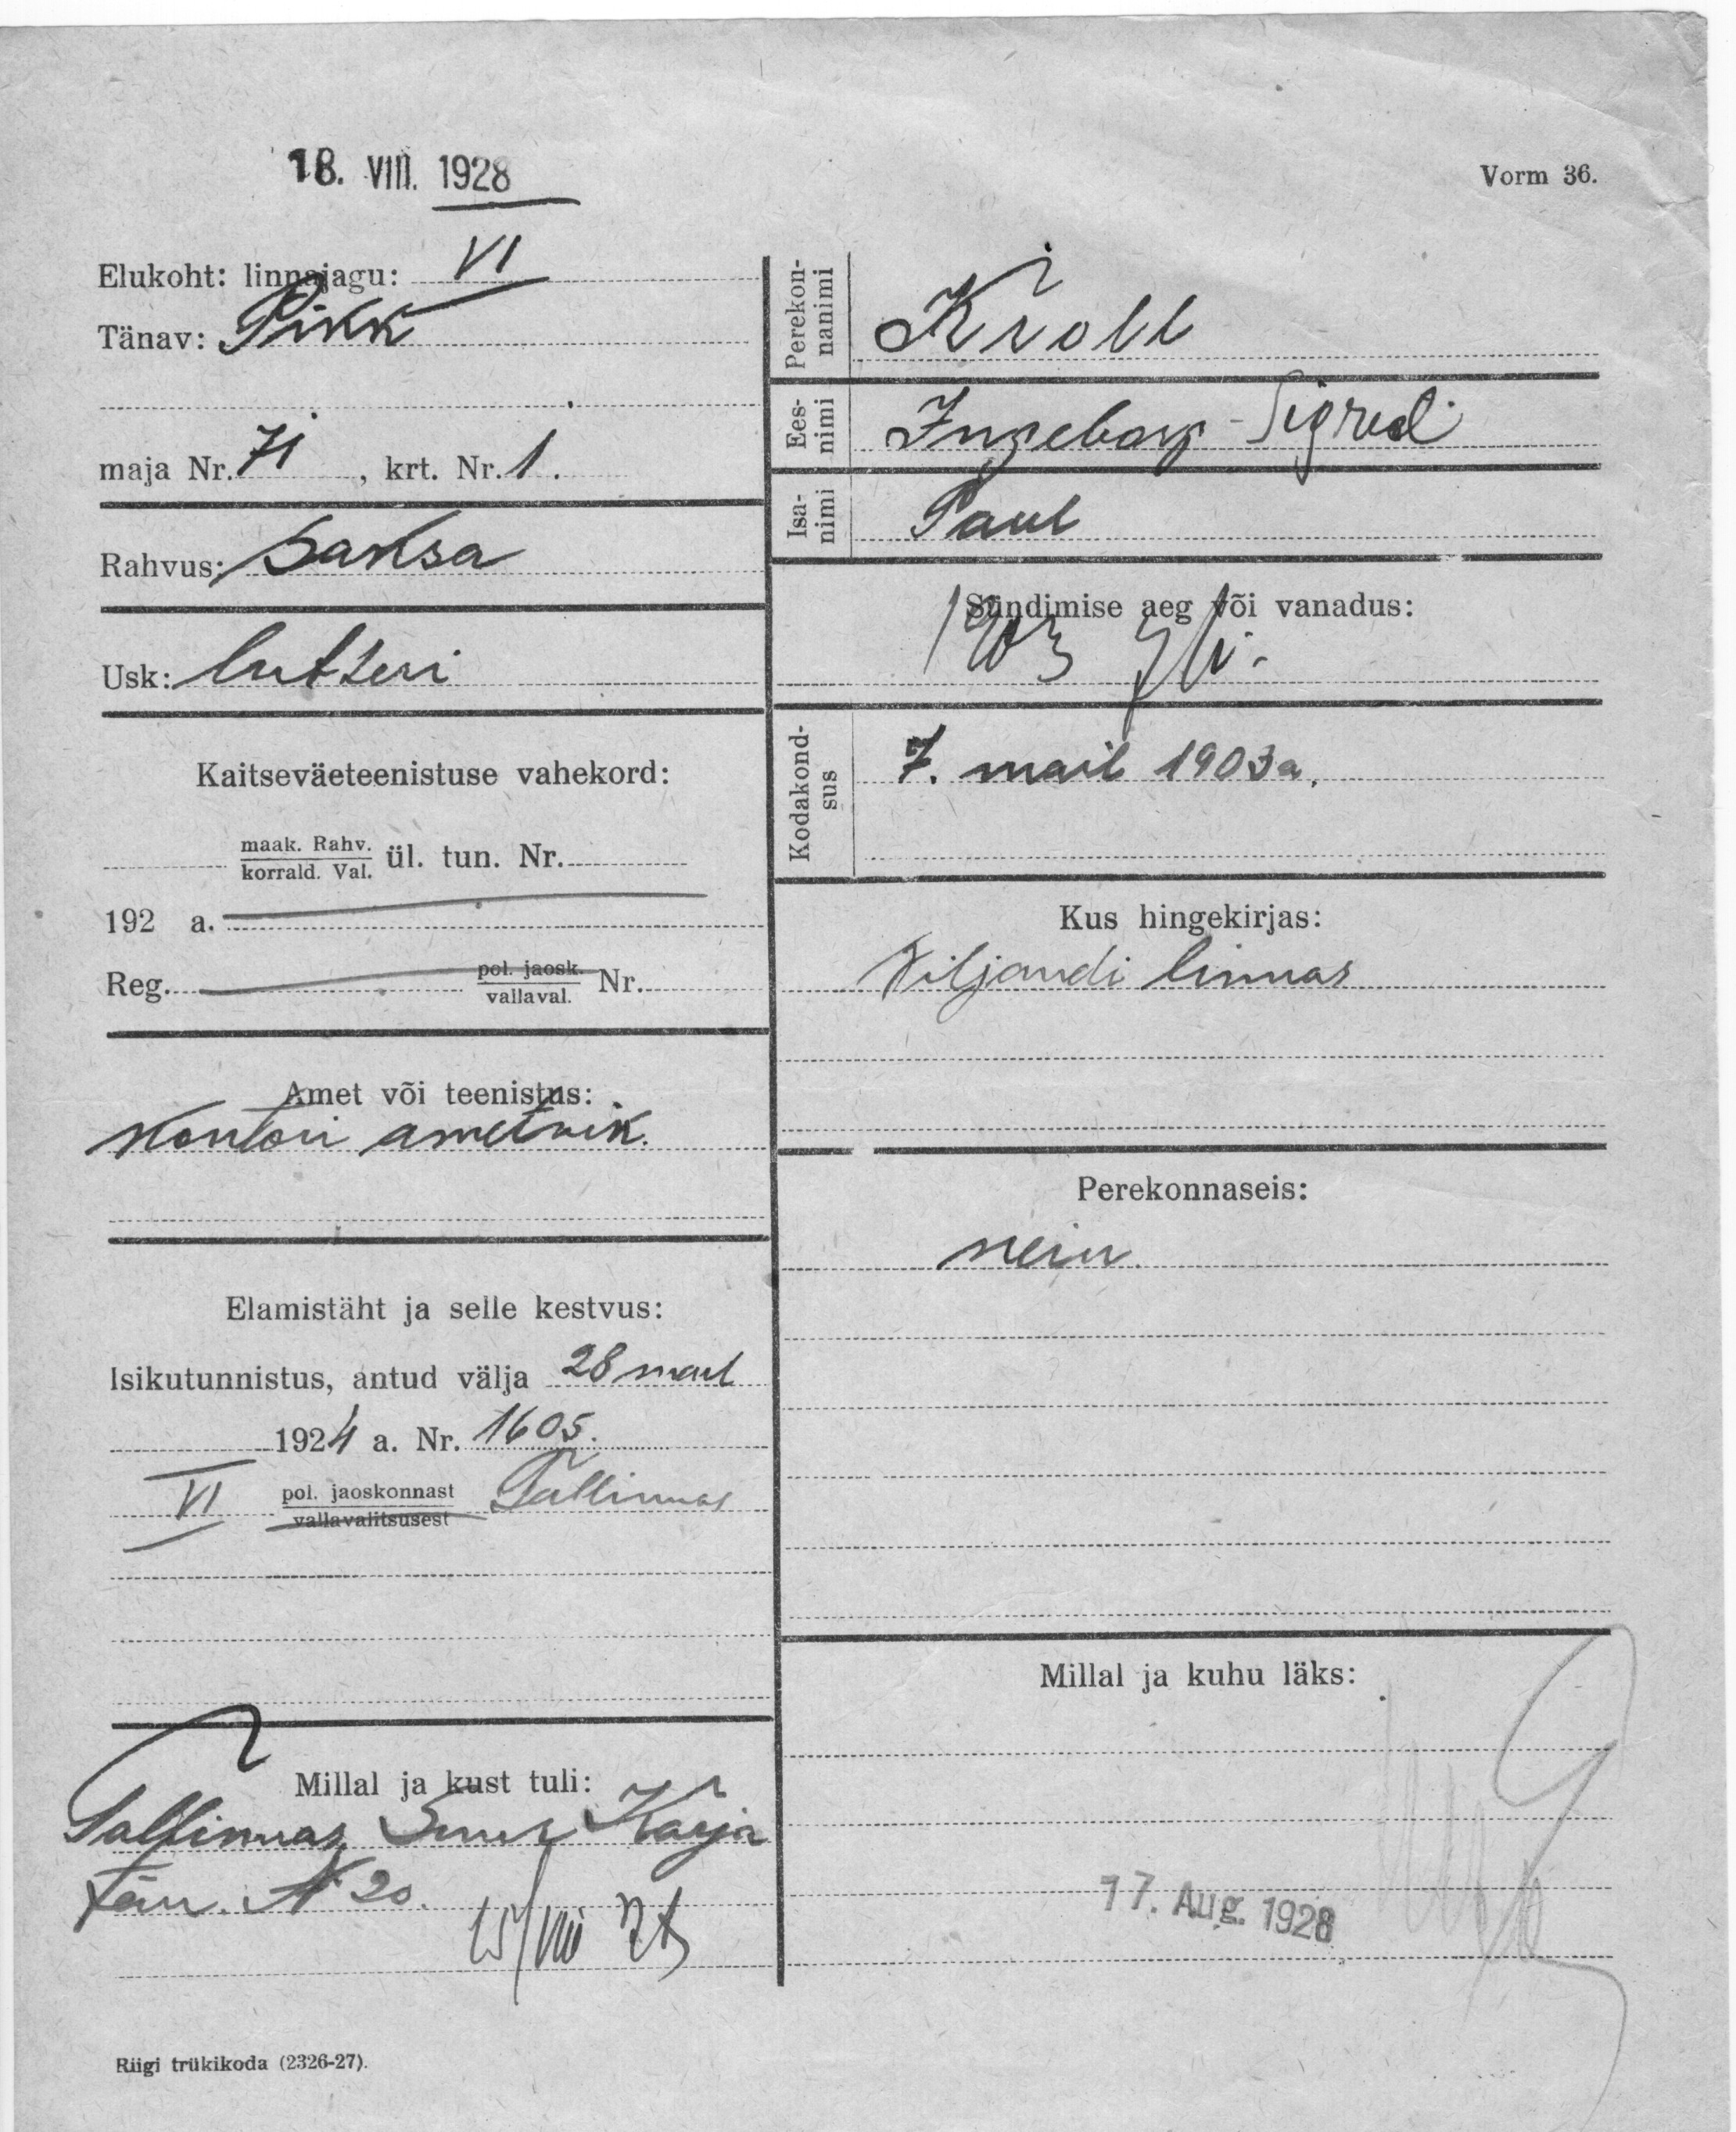 18. VIII. 1928
Vorm 36.
Elukoht: linnajagu: VI
Tänav: Pikk
maja Nr. 71, krt. Nr. 1.
Rahvus: Saksa
Usk: lutteri
Kaitseväeteenistuse vahekord:
maak. Rahv.
korrald. Val. ül. tun. Nr.
192 a.
Reg. pol. jaosk.
vallaval. Nr.
Amet või teenistus:
Kontori ametnik.
Elamistäht ja selle kestvus:
Isikutunnistus, antud välja 28 mail
1924 a. Nr. 1605.
VI pol. jaoskonnast Tallinnas
vallavalitsusest
Millal ja kust tuli:
Tallinnas, Suur Karja
tän. N 20.
15/VIII 28
Riigi trükikoda (2326-27).
Perekon-
nanimi
Kroll
Ees-
nimi
Ingeborg-Sigrid
Isa-
nimi
Paul
Sündimise aeg või vanadus:
1903 7/V.
Kodakond-
sus
7. mail 1903 a.
Kus hingekirjas:
Viljandi linnas
Perekonnaseis:
neiu.
Millal ja kuhu läks:
17. Aug. 1928